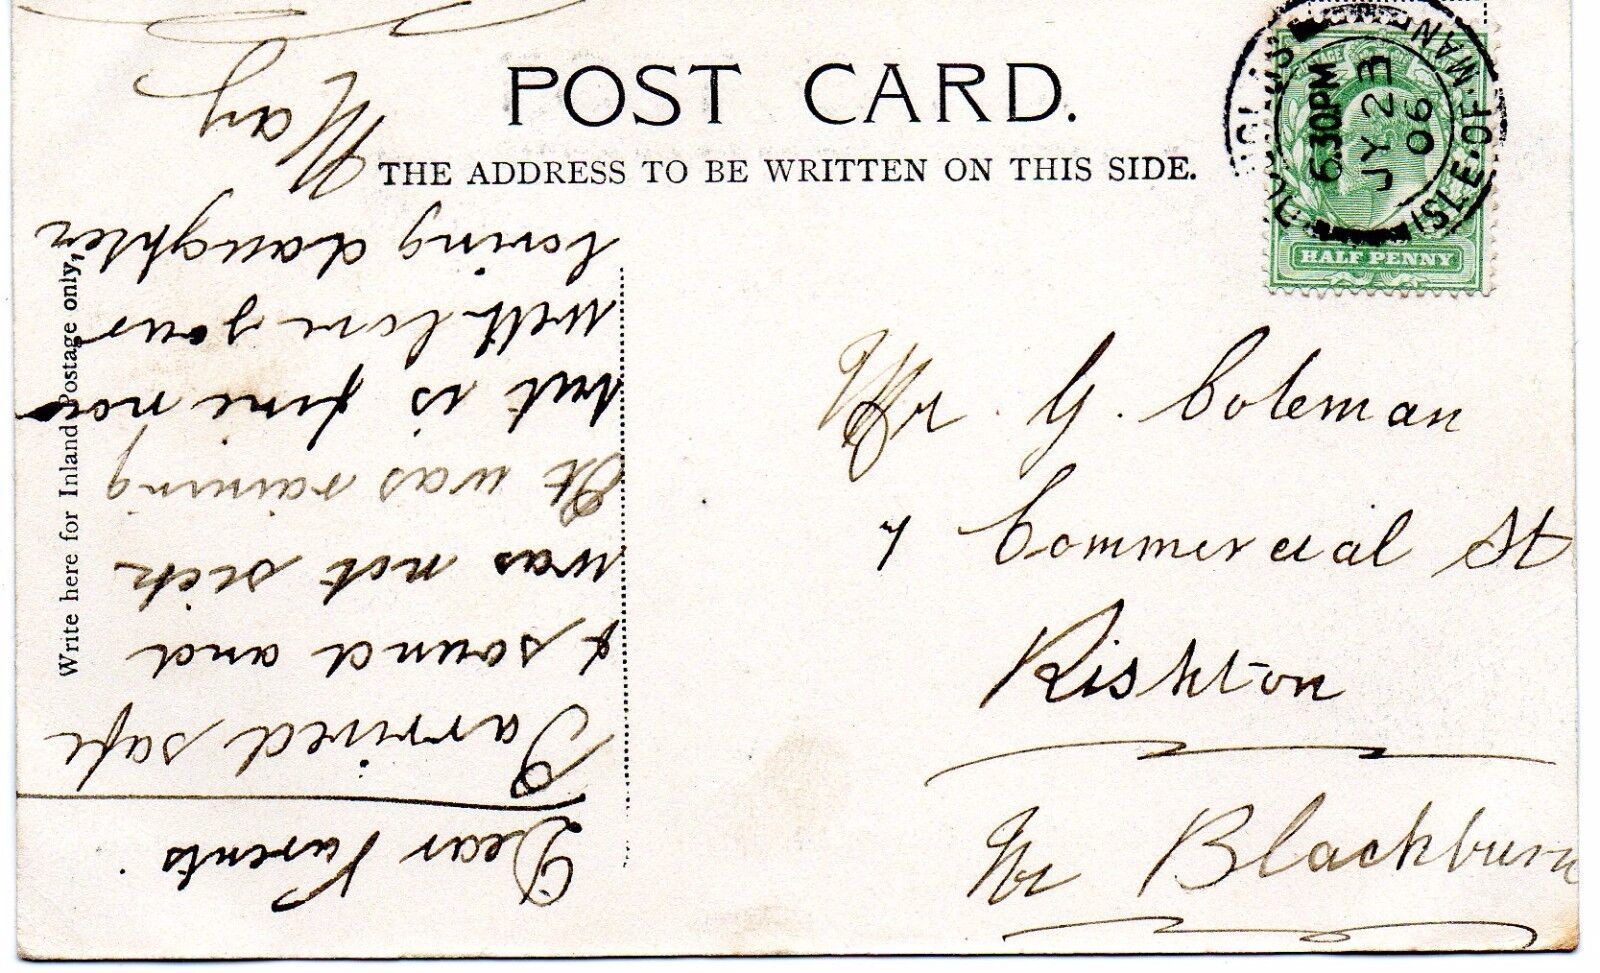 POST CARD.
THE ADDRESS TO BE WRITTEN ON THIS SIDE.
Write here for Inland Postage only,
Dear Parents
I arrived safe
& sound and
was not sick
It was raining
but is fine now
with love your
loving daughter
May
DOUGLAS
ISLE·OF·MAN
6.30PM
JY 23
06
HALF PENNY
Mr. G. Coleman
7 Commercial St
Rishton
Nr Blackburn